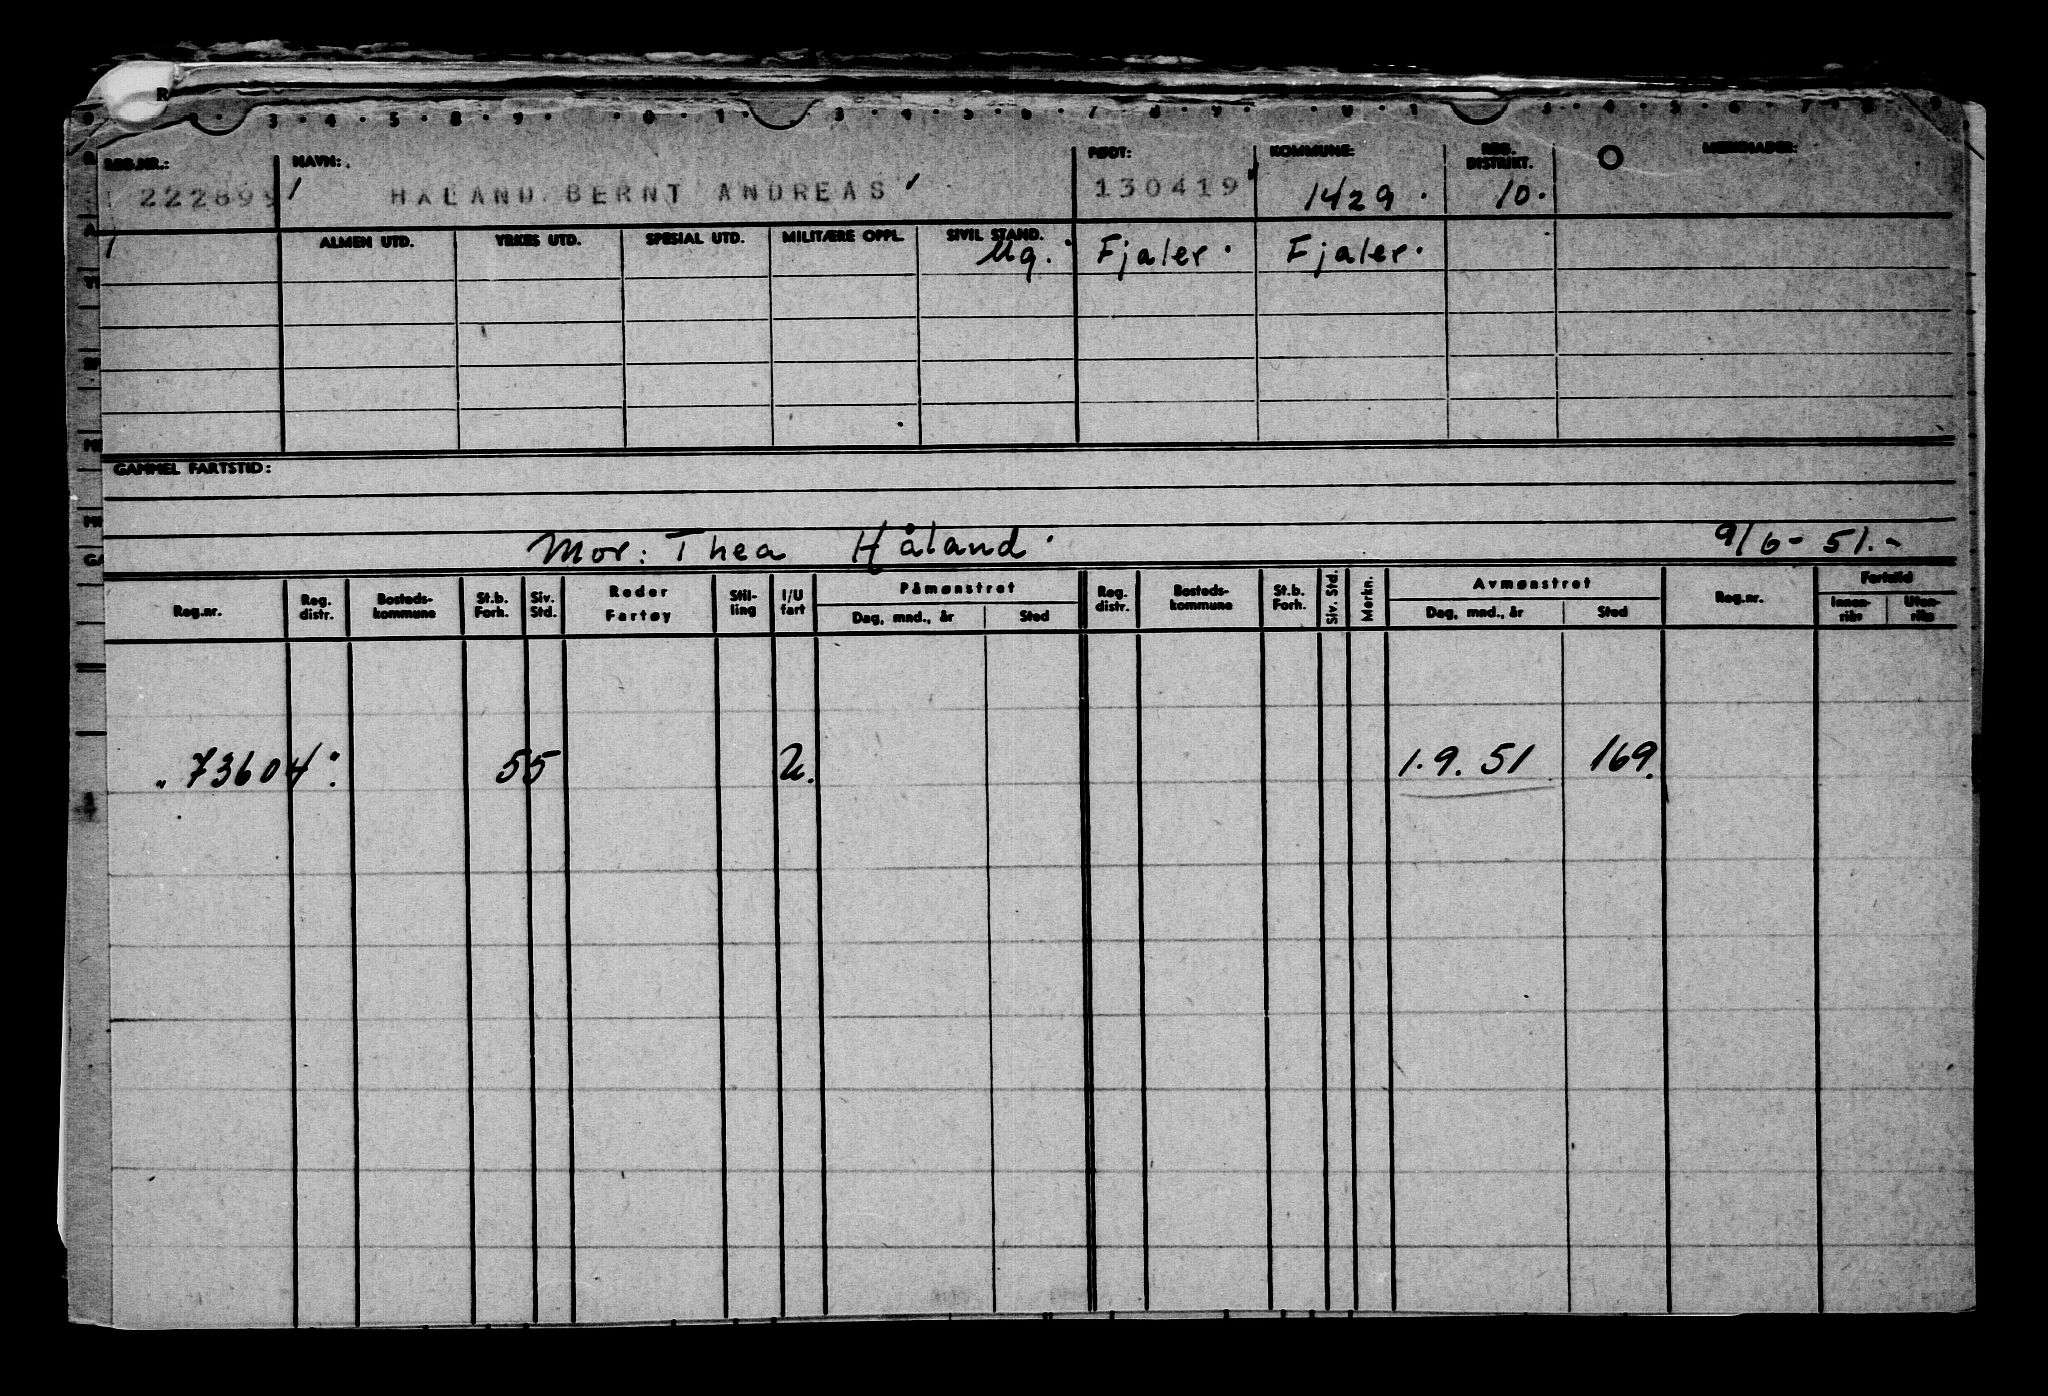 REG.NR.: NAVN: FØDT: KOMMUNE: REG. DISTRIKT. MERKNADER:
222899 HÅLAND BERNT ANDREAS 130419 1429 10.
ALMEN UTD. YRKES UTD. SPESIAL UTD. MILITÆRE OPPL. SIVIL STAND.
Ug. Fjaler. Fjaler.
GAMMEL FARTSTID:
Mor: Thea Håland 9/6-51.-
Reg.nr. Reg. distr. Bosteds-kommune St.b. Forh. Siv. Std. Reder Fartøy Stil-ling I/U fart Påmønstret Dag, mnd., år Sted Reg. distr. Bosteds-kommune St.b. Forh. Siv. Std. Merkn. Avmønstret Dag, mnd., år Sted Reg.nr. Fartstid Innen-riks Uten-riks
73604 55 2. 1.9.51 169.